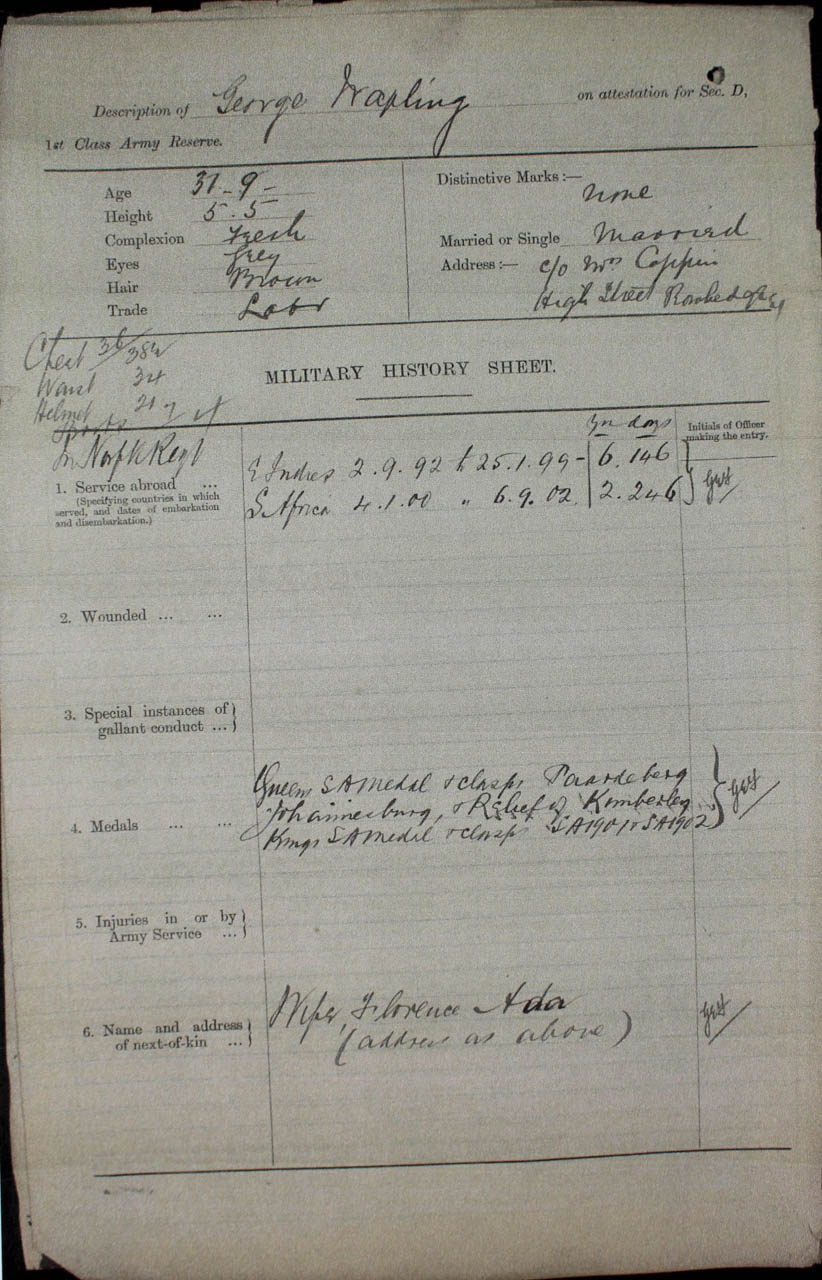 Description of George Wapling on attestation for Sec. D,
1st Class Army Reserve.
Age 31 - 9 -
Height 5 . 5
Complexion Fresh
Eyes Grey
Hair Brown
Trade Labr
Distinctive Marks :—
none
Married or Single Married
Address :— c/o Mrs Coppin
High Street Rowhedge
Chest 36/38½
Waist 34
Helmet 21
MILITARY HISTORY SHEET.
In Norfk Regt
yrs days
Initials of Officer
making the entry.
1. Service abroad ...
(Specifying countries in which
served, and dates of embarkation
and disembarkation.)
E Indies 2.9.92 to 25.1.99 - 6. 146
S. Africa 4.1.00 " 6.9.02. 2. 246
2. Wounded ... ...
3. Special instances of
gallant conduct ...
4. Medals ... ...
Queens SA Medal & clasps Paardeberg
Johannesburg, & Relief of Kimberley
Kings SA Medal & clasps SA 1901 & SA 1902
5. Injuries in or by
Army Service ...
6. Name and address
of next-of-kin ...
Wife, Florence Ada
(address as above)